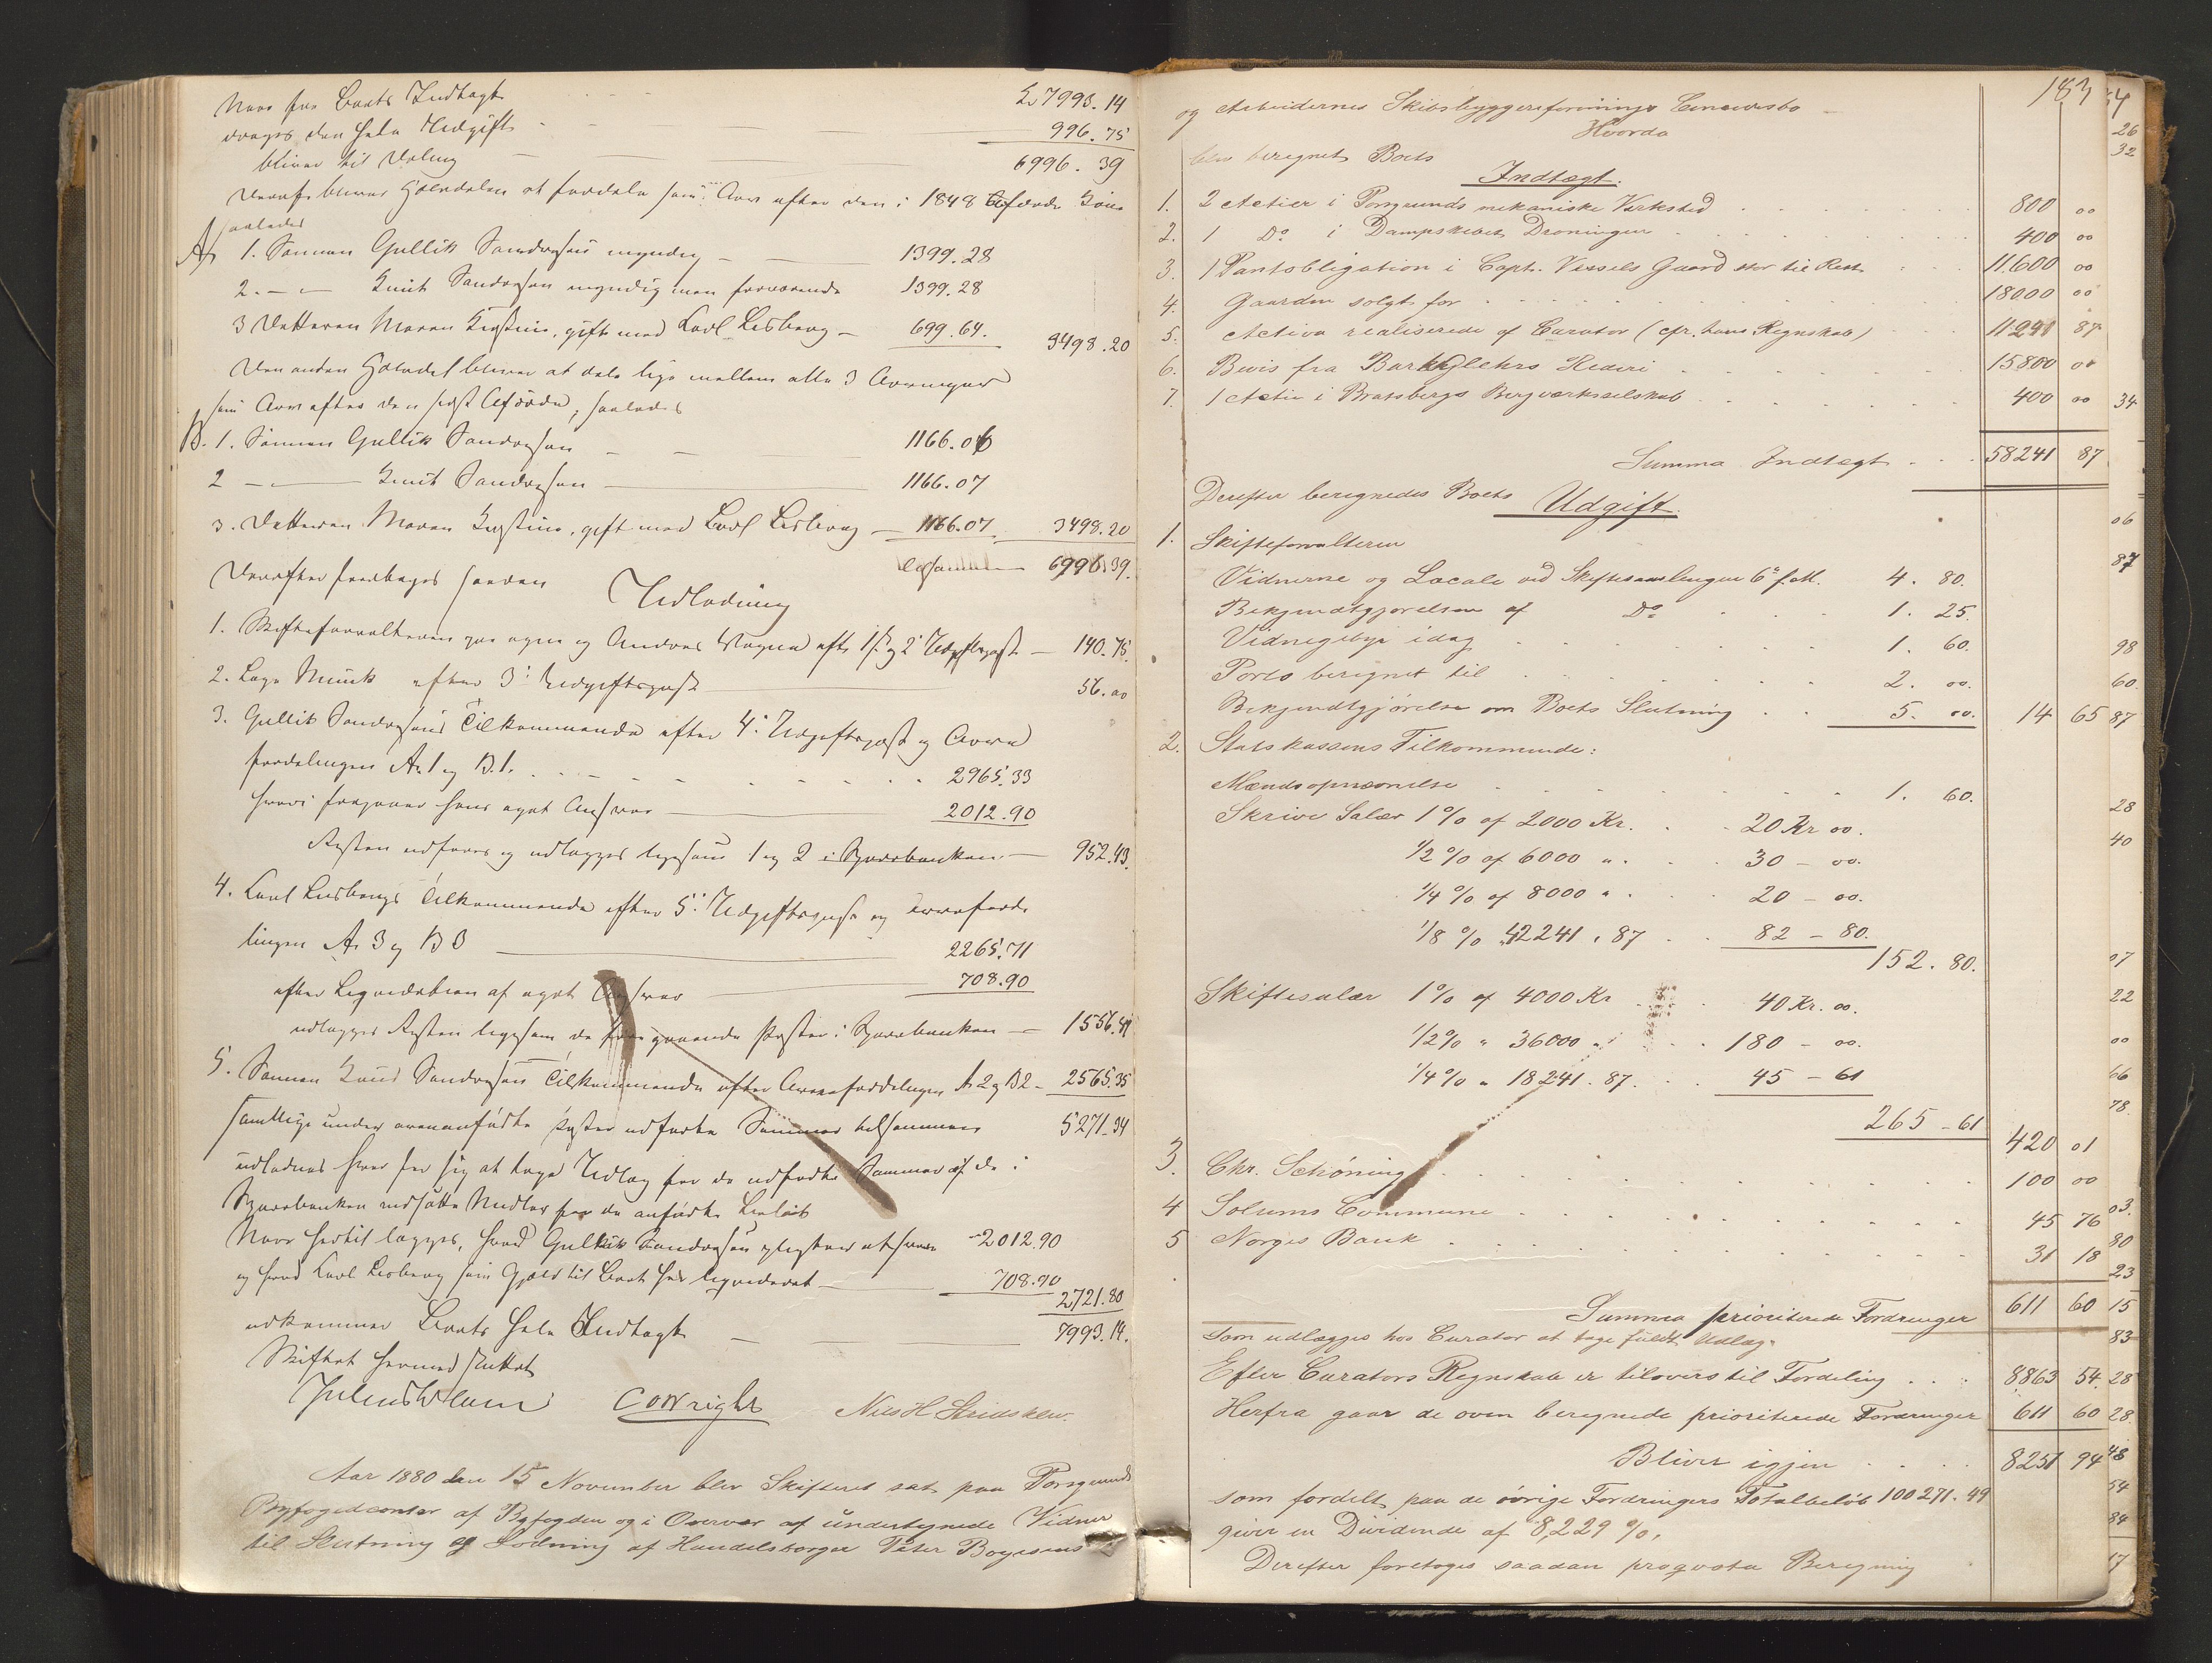 Naar fra Boets Indtægt Kr 7993.14
drages den hele Udgift 996.75
bliver til Deling 6996.39
Deraf bliver Halvdelen at fordele som Arv efter den i 1848 afdøde Kone
saaledes
A. 1. Sønnen Gullik Sondresen myndig 1399.28
2. — Knut Sondresen myndig men fraværende 1399.28
3 Datteren Maren Kirstine, gift med Carl Lisberg 699.64. 3498.20
Den anden Halvdel bliver at dele lige mellem alle 3 Arvinger
som Arv efter den sidst Afdøde, saaledes
B. 1. Sønnen Gullik Sondresen 1166.06
2 — Knut Sondresen 1166.07
3. Datteren Maren Kirstine, gift med Carl Lisberg 1166.07. 3498.20
tilsammen 6996.39.
Derefter foretages saadan Udlodning
1. Skifteforvalteren paa egne og Andres Vegne efter 1ste og 2de Udgiftspost 140.75.
2. Lage Munk efter 3die Udgiftspost 56.00
3. Gullik Sondresens Tilkommende efter 4de Udgiftspost og Arve
fordelingen A. 1 og B. 1. 2965.33
hvori fragaaer hans eget Ansvar 2012.90
Resten udføres og udlægges ligesom 1 og 2 i Sparebanken 952.43.
4. Carl Lisbergs Tilkommende efter 5te Udgiftspost og Arveforde
lingen A. 3 og B 3 2265.71
efter Liqvidation af eget Ansvar 708.90
udlægges Resten ligesom de foregaaende Poster i Sparebanken 1556.81
5. Sønnen Knud Sondresens Tilkommende efter Arvefordelingen A 2 og B 2 2565.35
samtlige under ovenanførte Poster udførte Summer tilsammen 5271.34
udlodnes hver for sig at tage Udlæg for de udførte Summer af de i
Sparebanken indsatte Midler for de anførte Beløb
Naar hertil lægges, hvad Gullik Sondresen pligter at svare 2012.90
og hvad Carl Lisberg som Gjæld til Boet har liqvideret 708.90 2721.80
udkommer Boets hele Indtægt 7993.14.
Skiftet hermed sluttet
COWright Niels H. Stridsklev.
Aar 1880 den 15 November blev Skifteret sat paa Porsgrunds
Byfogedcontor af Byfogden og i Overvær af undertegnede Vidner
til Slutning og Lodning af Handelsborger Peter Boyesens
183
og Arbeidernes Skibsbyggerforenings Concursbo
Hvorda
blev beregnet Boets
Indtægt.
1. 2 Actier i Porsgrunds mekaniske Værksted 800 00
2. 1 Do i Dampskibet Dronningen 400 00
3. 1 Pantobligation i Capt. Vessels Gaard stor til Rest 11.600 00
4. Gaarden solgt for 18000 00
5. Activa realiserede af Curator (cfr. hans Regnskab) 11241 87
6. Bevis fra Bark Oehrs Rederi 15800 00
7. 1 Actie i Bratsbergs Bergværksselskab 400 00
Summa Indtægt 58241 87
Derefter beregnedes Boets Udgift.
1. Skifteforvalteren
Vidnerne og Locale ved Skiftesamlingen 6te f. M. 4. 80.
Bekjendtgjørelsen af Do 1. 25.
Vidnegebyr idag 1. 60.
Porto beregnet til 2. 00.
Bekjendtgjørelse om Boets Slutning 5. 00. 14 65
2. Statskassens Tilkommende:
Mændsopnævnelse 1. 60.
Skriver Salær 1% af 2000 Kr. 20 Kr 00.
1/2% af 6000 " 30 – 00.
1/4% af 8000 " 20 – 00.
1/8% " 42241.87 82 – 80.
152. 80.
Skiftesalær 1% af 4000 Kr 40 Kr. 00.
1/2% " 36000 " 180 – 00.
1/4% " 18241.87. 45 – 61
265 – 61 420 01
3. Chr. Schöning 100 00
4 Solums Commune 45 76
5 Norges Bank 31 18
Summa prioriterede Fordringer 611 60
som udlægges hos Curator at tage fuldt Udlæg.
Efter Curators Regnskab er tilovers til Fordeling 8863 54.
Herfra gaar de oven beregnede prioriterede Fordringer 611 60
Bliver igjen 8251 94
som fordelt paa de øvrige Fordringers Totalbeløb 100271.49
giver en Dividende af 8,229 %.
Derefter foretoges saadan proqvota Beregning